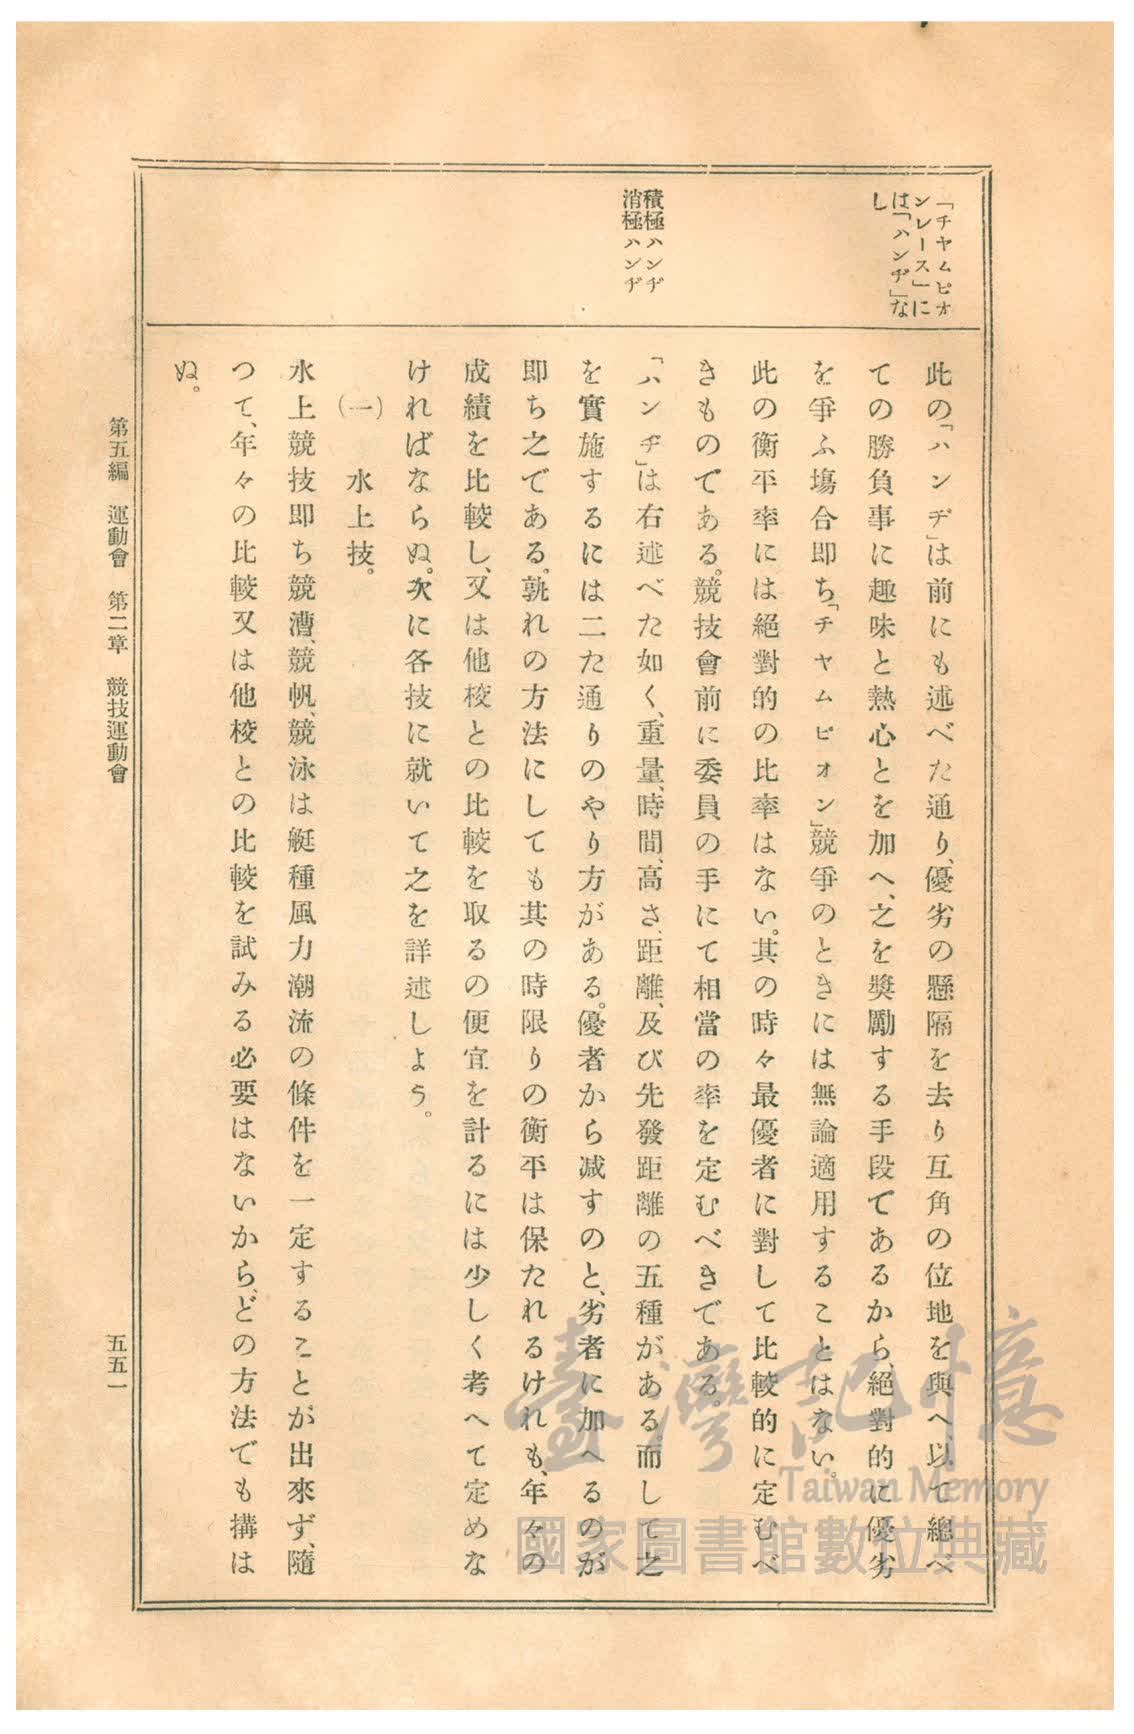 「チヤムピオ
ンレース」に
は「ハンヂ」な
し
積極ハンヂ
消極ハンヂ
此の「ハンヂ」は前にも述べた通り、優劣の懸隔を去り互角の位地を與へ、以て總べ
ての勝負事に趣味と熱心とを加へ、之を奬勵する手段であるから、絕對的に優劣
を爭ふ塲合即ち「チヤムピオン」競爭のときには無論適用することはない。
此の衡平率には絕對的の比率はない。其の時々最優者に對して比較的に定むべ
きものである。競技會前に委員の手にて相當の率を定むべきである。
「ハンヂ」は右述べた如く、重量、時間、高さ、距離、及び先發距離の五種がある而して之
を實施するには二た通りのやり方がある。優者から减すのと、劣者に加へるのが
即ち之である。孰れの方法にしても其の時限りの衡平は保たれるけれも、年々の
成績を比較し、又は他校との比較を取るの便宜を計るには少しく考へて定めな
ければならぬ。次に各技に就いて之を詳述しよう。
(一)　水上技。
水上競技即ち競漕、競帆、競泳は艇種風力潮流の條件を一定することが出來ず、隨
つて、年々の比較又は他校との比較を試みる必要はないから、どの方法でも搆は
ぬ。
第五編　運動會　第二章　競技運動會
五五一
臺灣記憶
Taiwan Memory
國家圖書館數位典藏